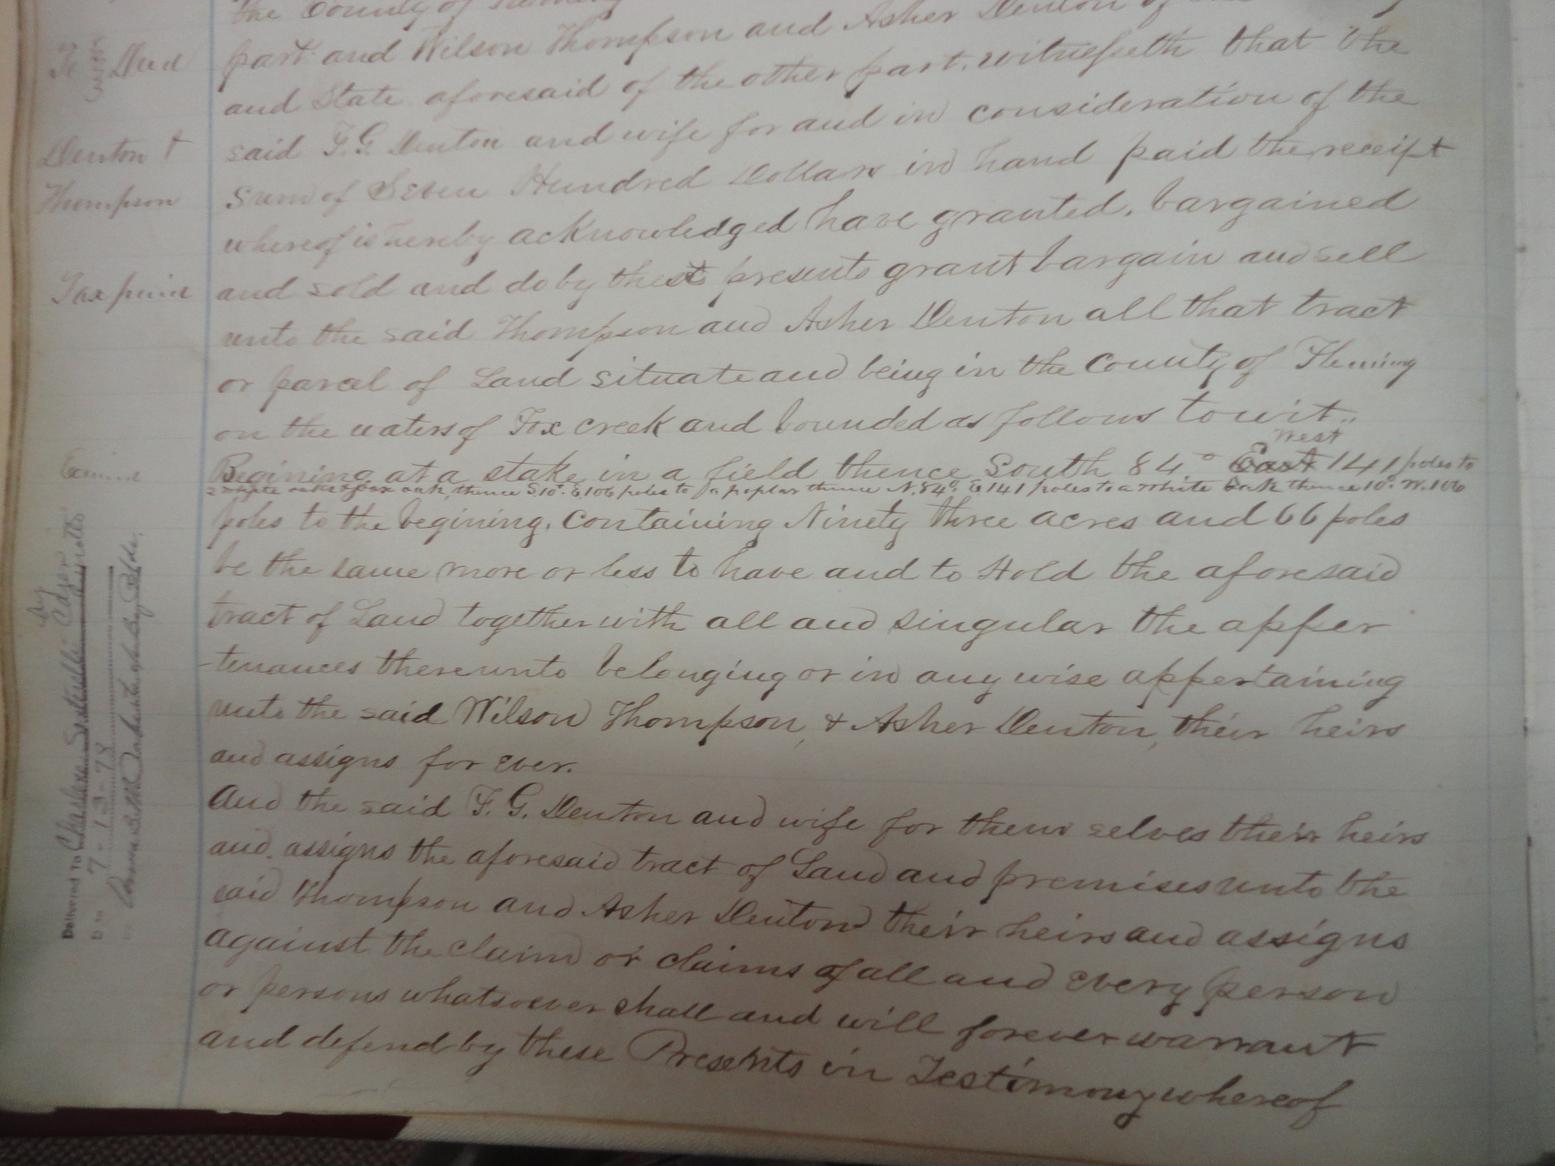 the County of Fleming
To Deed
part and Wilson Thompson and Asher Denton of the
and State aforesaid of the other part, witnesseth that the
Denton &
said F. G. Denton and wife for and in consideration of the
Thompson
sum of Seven Hundred Dollars in hand paid the receipt
whereof is hereby acknowledged have granted, bargained
Tax paid
and sold and do by these presents grant bargain and sell
unto the said Thompson and Asher Denton all that tract
or parcel of Land situate and being in the County of Fleming
on the waters of Fox creek and bounded as follows to wit..
West
Begining at a stake in a field thence South 84° East 141 poles to
oak thence S 10° E 106 poles to a poplar thence N. 84° E 141 poles to a White Oak thence 10° W. 106
poles to the begining, Containing Ninety three acres and 66 poles
be the same more or less to have and to Hold the aforesaid
tract of Land together with all and singular the apper
-tenances thereunto belonging or in any wise appertaining
unto the said Wilson Thompson, & Asher Denton, their heirs
and assigns for ever.
And the said F. G. Denton and wife for them selves their heirs
and assigns the aforesaid tract of Land and premises unto the
said Thompson and Asher Denton their heirs and assigns
against the claim or claims of all and every person
or persons whatsoever shall and will forever warrant
and defend by these Presents in Testimony whereof
Delivered to
7-13-73